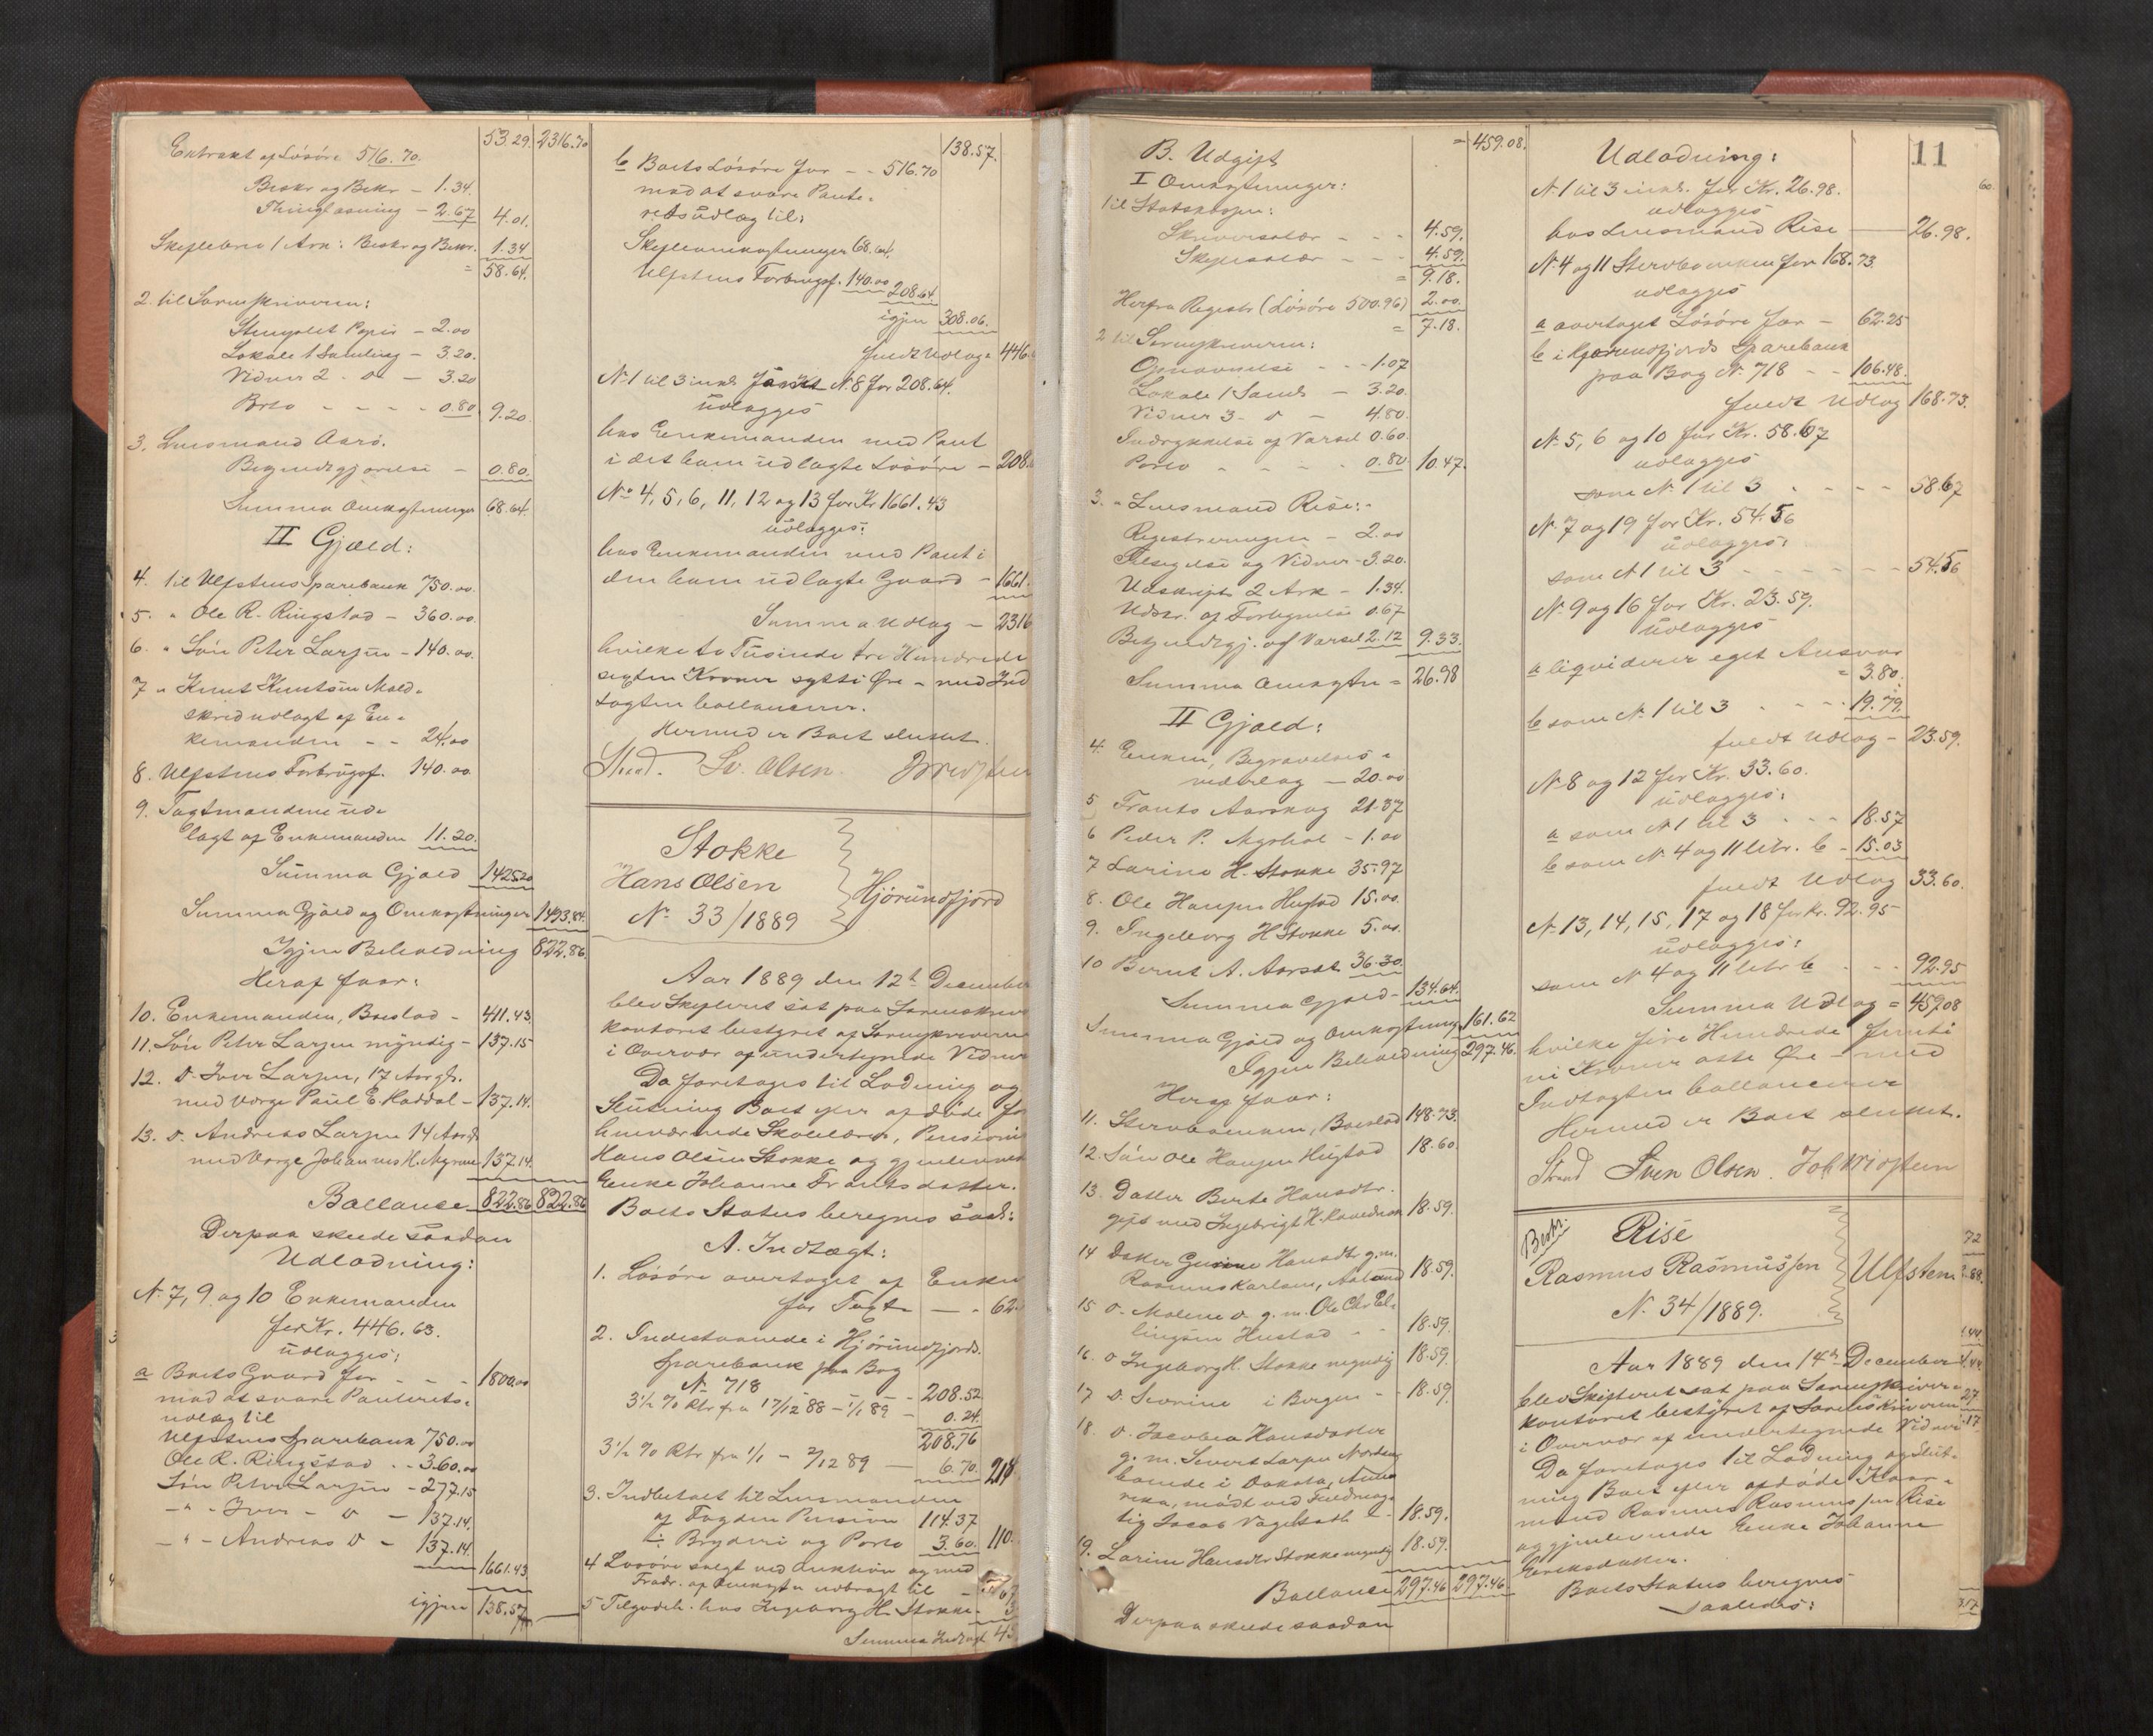 53.29. 2316.70
Extrakt af Lösöre 516.70.
Beskr og Bekr - 1.34.
Thinglæsning - 2.67 4.01.
Skiftebrev 1 Ark: Beskr og Bekr. 1.34
= 58.64.
2. til Sorenskriveren:
Stemplet Papir - 2.00
Lokale 1 Samling - 3.20.
Vidner 2 - do - 3.20
Porto - - - - 0.80 9.20
3. Lensmand Aarö.
Bekjendtgjörelse - 0.80.
Summa Omkostninger 68.64.
II Gjæld:
4. til Ulfstens Sparebank 750.00
5. " Ole R. Ringstad - 360.00
6. " Sön Peter Larsen - 140.00
7 " Knut Knutsen Mold-
skred udlagt af En-
kemanden - - 24.00
8. Ulfstens Forbrugsf. 140.00
9. Taxtmændene ud-
lagt af Enkemanden 11.20
Summa Gjæld 1425.20
Summa Gjæld og Omkostninger 1493.84.
Igjen Beholdning 822.86.
Heraf faar:
10. Enkemanden, Boeslod - 411.43.
11. Sön Peter Larsen myndig - 137.15
12. do. Iver Larsen, 17 Aar gl.
med Værge Paul E. Haddal - 137.14.
13. do. Andreas Larsen 14 Aar gl.
med Værge Johannes H. Myrene 137.14.
Ballance 822.86 822.86
Derpaa skede saadan
Udlodning:
No. 7, 9 og 10 Enkemanden
for Kr. 446.63.
udlægges:
a Boets Gaard for - - - 1800.00
mod at svare Panterets-
udlæg til
Ulfstens Sparebank 750.00
Ole R. Ringstad - - 360.00
Sön Peter Larsen - 277.15
- " - Iver - do - 137.14.
- " - Andreas do - 137.14.
1661.43.
igjen 138.57
138.57.
b Boets Lösöre for - - 516.70
mod at svare Pante-
retsudlæg til:
Skifteomkostninger 68.64.
Ulfstens Forbrugsf. 140.00
208.64
igjen 308.06.
fuldt Udlæg = 446.
No. 1 til 3 inkl. samt No. 8 for 208.64.
udlægges
hos Enkemanden med Pant
i det ham udlagte Lösöre - 208.
No 4, 5, 6, 11, 12 og 13 for Kr 1661.43
udlægges:
hos Enkemanden med Pant i
den ham udlagte Gaard - 1661.
Summa Udlæg - 2316
hvilke to Tusinde tre Hundrede
sexten Kroner sytti Öre - med Ind
tægten ballancerer.
Hermed er Boet sluttet.
Strand. Sv. Olsen.
Stokke
Hans Olsen
No. 33/1889
Hjörundfjord
Aar 1889 den 12te December
blev Skifteret sat paa Sorenskriver
kontoret bestyret af Sorenskriveren
i Overvær af undertegnede Vidner
Da foretoges til Lodning og
Slutning Boet efter afdöde for
henværende Skolelærer, Pensionist
Hans Olsen Stokke og gjenlevende
Enke Johanne Frantsdatter.
Boets Status beregnes saal:
A. Indtægt:
1. Lösöre overtaget af Enken
for Taxt - - 62.
2. Indestaaende i Hjörundfjords
Sparebank paa Bog
No 718 - - 208.52
3½ % Rtr fra 17/12 88 - 1/1 89 - 0.24.
208.76
3½ % Rtr fra 1/1 - 2/12 89 - 6.70. 21
3. Indbetalt til Lensmanden
af Fogden Pension 114.37
÷ Bryderi og Porto 3.60. 110.
4 Lösöre solgt ved Auktion og med
Fradr. af Omkostn udbragt til -
5 Tilgodeh. hos Ingeborg H. Stokke -
Summa Indtægt 45
11
B. Udgift = 459.08.
I Omkostninger:
1 til Statskassen:
Skriversalær - - - 4.59.
Skiftesalær - - - 4.59.
= 9.18.
Herfra Registr (Lösöre 500.96) 2.00
= 7.18.
2 til Sorenskriveren:
Opnævnelse - - - 1.07
Lokale 1 Saml. - 3.20.
Vidner 3 - do - 4.80.
Indrykkelse af Varsel 0.60.
Porto - - - - 0.80 10.47.
3. " Lensmand Rise:
Registreringen - 2.00
Tilsigelse og Vidner - 3.20.
Udskrift 2 Ark - 1.34.
Udskr. af Forlegnelse 0.67
Bekjendtgj. af Varsel 2.12 9.33.
Summa Omkostn = 26.98
II Gjæld:
4. Enken, Begravelses-
vederlag - 20.00
5 Frants Aarskog 21.37
6 Peder P. Myrhol - 1.00
7 Larine H. Stokke 35.97
8. Ole Hansen Hustad 15.00.
9. Ingeborg H Stokke 5.00.
10 Bernt A. Aarset 36.30.
Summa Gjæld - 134.64.
Summa Gjæld og Omkostning 161.62
Igjen Beholdning 297.46.
Heraf faar:
11. Stervboenken, Boeslod 148.73.
12. Sön Ole Hansen Hustad 18.60.
13. Datter Berte Hansdtr.
gift med Ingebrigt K. 18.59.
14 Datter Hansdtr g.m.
Rasmus Karlsen, Aalesund 18.59.
15 do. Malene do g.m. Ole Chr El-
lingsen Hustad - - 18.59.
16. do Ingeborg H. Stokke myndig 18.59.
17 do. Severine i Bergen - - 18.59.
18. do. Jacobea Hansdatter
g.m. Sivert Larsen
boende i Dakota, Ame-
rika, mödt ved Fuldmæg-
tig Jacob 18.59.
19. Larine Hansdtr Stokke myndig 18.59.
Ballance 297.46 297.46
Derpaa skede saadan
Udlodning:
No 1 til 3 inkl. for Kr. 26.98.
udlægges
hos Lensmand Rise 26.98.
No 4 og 11 Stervboenken for 168.73.
udlægges
a overtaget Lösöre for - 62.25
b i Hjörundfjords Sparebank
paa Bog No. 718 - - 106.48.
fuldt Udlæg 168.73.
No 5, 6 og 10 for Kr. 58.67
udlægges
som No. 1 til 3 - - - - 58.67
No. 7 og 19 for Kr. 54.56
udlægges:
som No 1 til 3 - - - - - 54.56
No. 9 og 16 for Kr. 23.59.
udlægges
a liqviderer eget Ansvar
= 3.80.
b som No. 1 til 3 - - - - 19.79.
fuldt Udlæg - 23.59.
No 8 og 12 for Kr. 33.60.
udlægges:
a som No 1 til 3 - - - 18.57
b som No. 4 og 11 litr. b - 15.03
fuldt Udlæg 33.60.
No 13, 14, 15, 17 og 18 for Kr. 92.95
udlægges:
som No 4 og 11 litr b - - - 92.95
Summa Udlæg = 459.08
hvilke fire Hundrede femti
ni Kroner otte Öre - med
Indtægten ballancerer
Hermed er Boet sluttet.
Strand Sven Olsen.
Beskr.
Rise
Rasmus Rasmussen
No. 34/1889.
Ulfsten
Aar 1889 den 14de December
blev Skifteret sat paa Sorenskriver-
kontoret bestyret af Sorenskriveren
i Overvær af undertegnede Vidner
Da foretoges til Lodning og Slut-
ning Boet efter afdöde Kaar-
mand Rasmus Rasmussen Rise
og gjenlevende Enke Johanne
Eriksdatter.
Boets Status beregnes
saaledes: